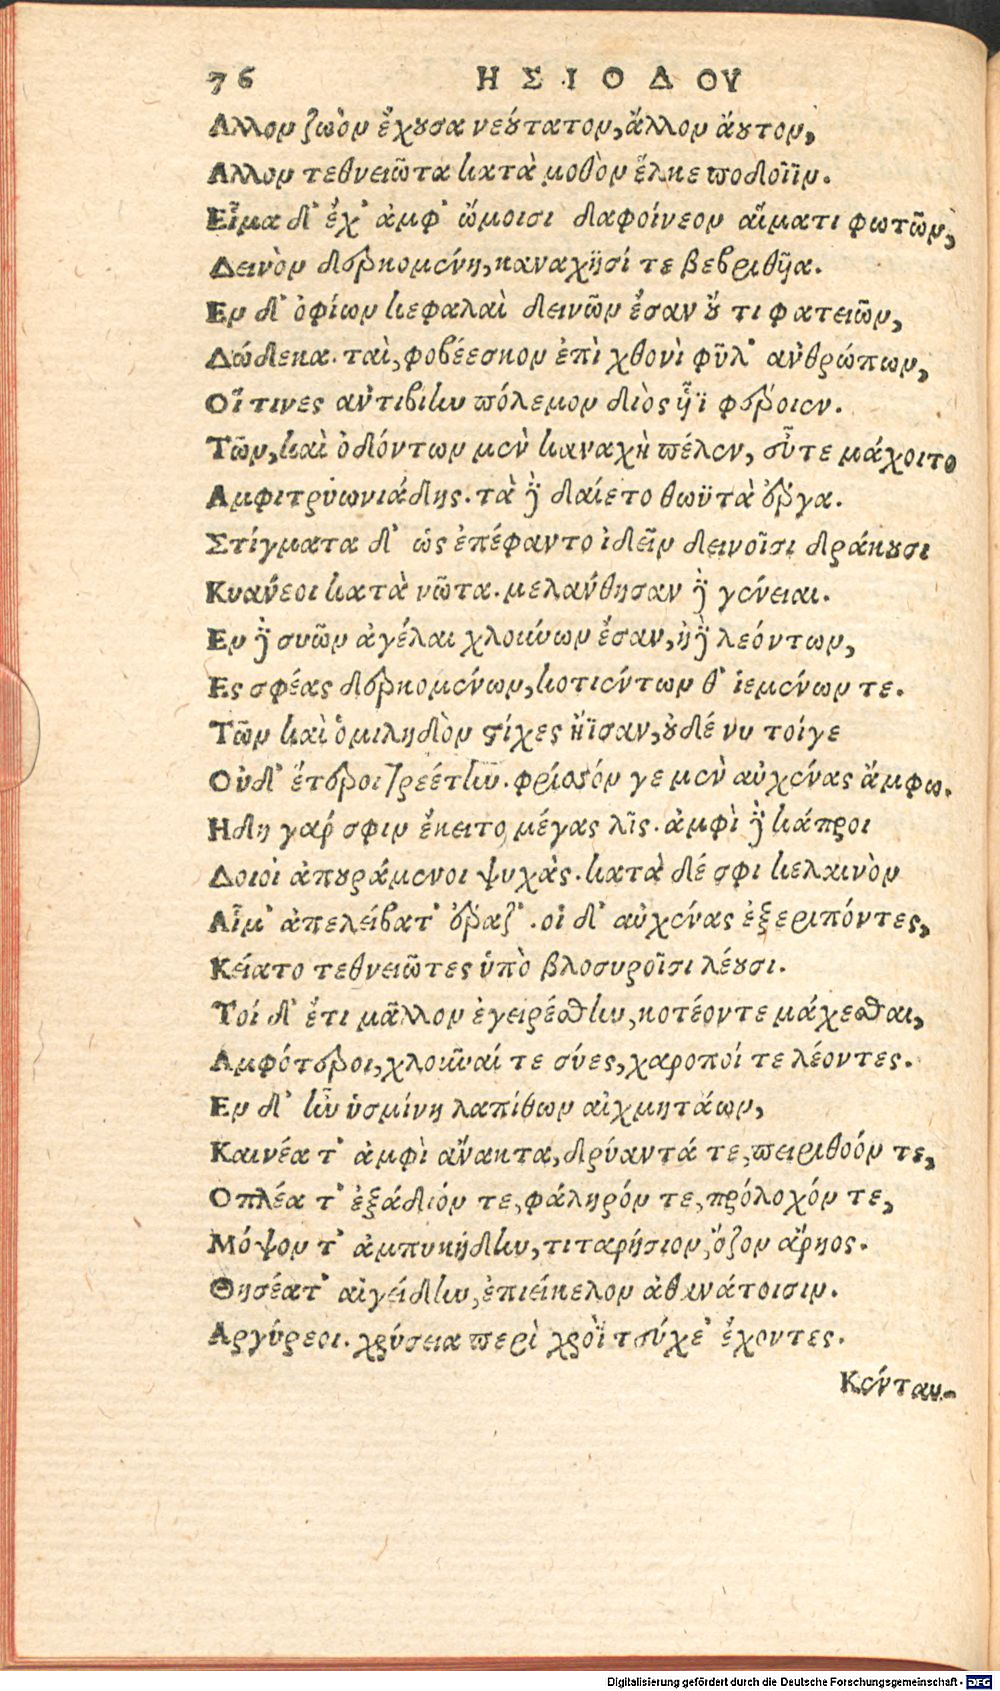 76 ΗΣΙΟΔΟΥ
Αλλον ζωὸν ἔχουσα νεούτατον, ἄλλον ἄουτον,
Αλλον τεθνειῶτα κατὰ μοθὸν ἕλκε ποδοῖϊν.
Εἷμα δ' ἔχ' ἀμφ' ὤμοισι δαφοίνεον αἵματι φωτῶν,
Δεινὸν δερκομένη, καναχῇσί τε βεβριθῆα.
Εν δ' ὀφίων κεφαλαὶ δεινῶν ἔσαν οὔ τι φατειῶν,
Δώδεκα. ταὶ, φοβέεσκον ἐπὶ χθονὶ φῦλ' ἀνθρώπων,
Οἵ τινες ἀντιβίην πόλεμον διὸς ᾗϊ φέροιεν.
Τῶν, καὶ ὀδόντων μὲν καναχὴ πέλεν, εὖτε μάχοιτο
Αμφιτρυωνιάδης. τὰ δὲ δαίετο θωϋτὰ ἔργα.
Στίγματα δ' ὡς ἐπέφαντο ἰδεῖν δεινοῖσι δράκουσι
Κυανέοι κατὰ νῶτα. μελάνθησαν δὲ γένειαι.
Εν δὲ συῶν ἀγέλαι χλουνων ἔσαν, ἠδὲ λεόντων,
Ες σφέας δερκομένων, κοτιέντων θ' ἱεμένων τε.
Τῶν καὶ ὁμιληδὸν στίχες ἤϊσαν, οὐδέ νυ τοίγε
Οὐδ' ἕτεροι τρεέτην. φρίσσόν γε μὲν αὐχένας ἄμφω.
Ηδη γάρ σφιν ἔκειτο μέγας λῖς. ἀμφὶ δὲ κάπροι
Δοιοὶ ἀπουράμενοι ψυχάς. κατὰ δέ σφι κελαινὸν
Αἷμ' ἀπελείβατ' ἔραζ'. οἱ δ' αὐχένας ἐξεριπόντες,
Κείατο τεθνειῶτες ὑπὸ βλοσυροῖσι λέουσι.
Τοί δ' ἔτι μᾶλλον ἐγειρέσθην, κοτέοντε μάχεσθαι,
Αμφότεροι, χλοῦναί τε σύες, χαροποί τε λέοντες.
Εν δ' ἦν ὑσμίνη λαπίθων αἰχμητάων,
Καινέα τ' ἀμφὶ ἄνακτα, δρύαντά τε, πειριθοόν τε,
Οπλέα τ' ἐξάδιόν τε, φάληρόν τε, πρόλοχόν τε,
Μόψον τ' ἀμπυκήδην, τιταρήσιον, ὄζον ἄρηος.
Θησέατ' αἰγείδην, ἐπιείκελον ἀθανάτοισιν.
Αργύρεοι. χρύσεια περὶ χροῒ τεύχε' ἔχοντες.
Κένταυ-
Digitalisierung gefördert durch die Deutsche Forschungsgemeinschaft - DFG